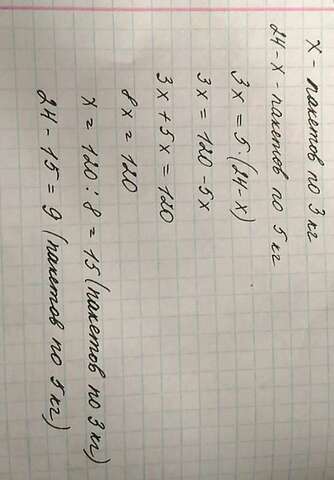 x - пакетов по 3 кг
24-x - пакетов по 5 кг
3x = 5 (24-x)
3x = 120 - 5x
3x + 5x = 120
8x = 120
x = 120 : 8 = 15 (пакетов по 3 кг)
24 - 15 = 9 (пакетов по 5 кг)